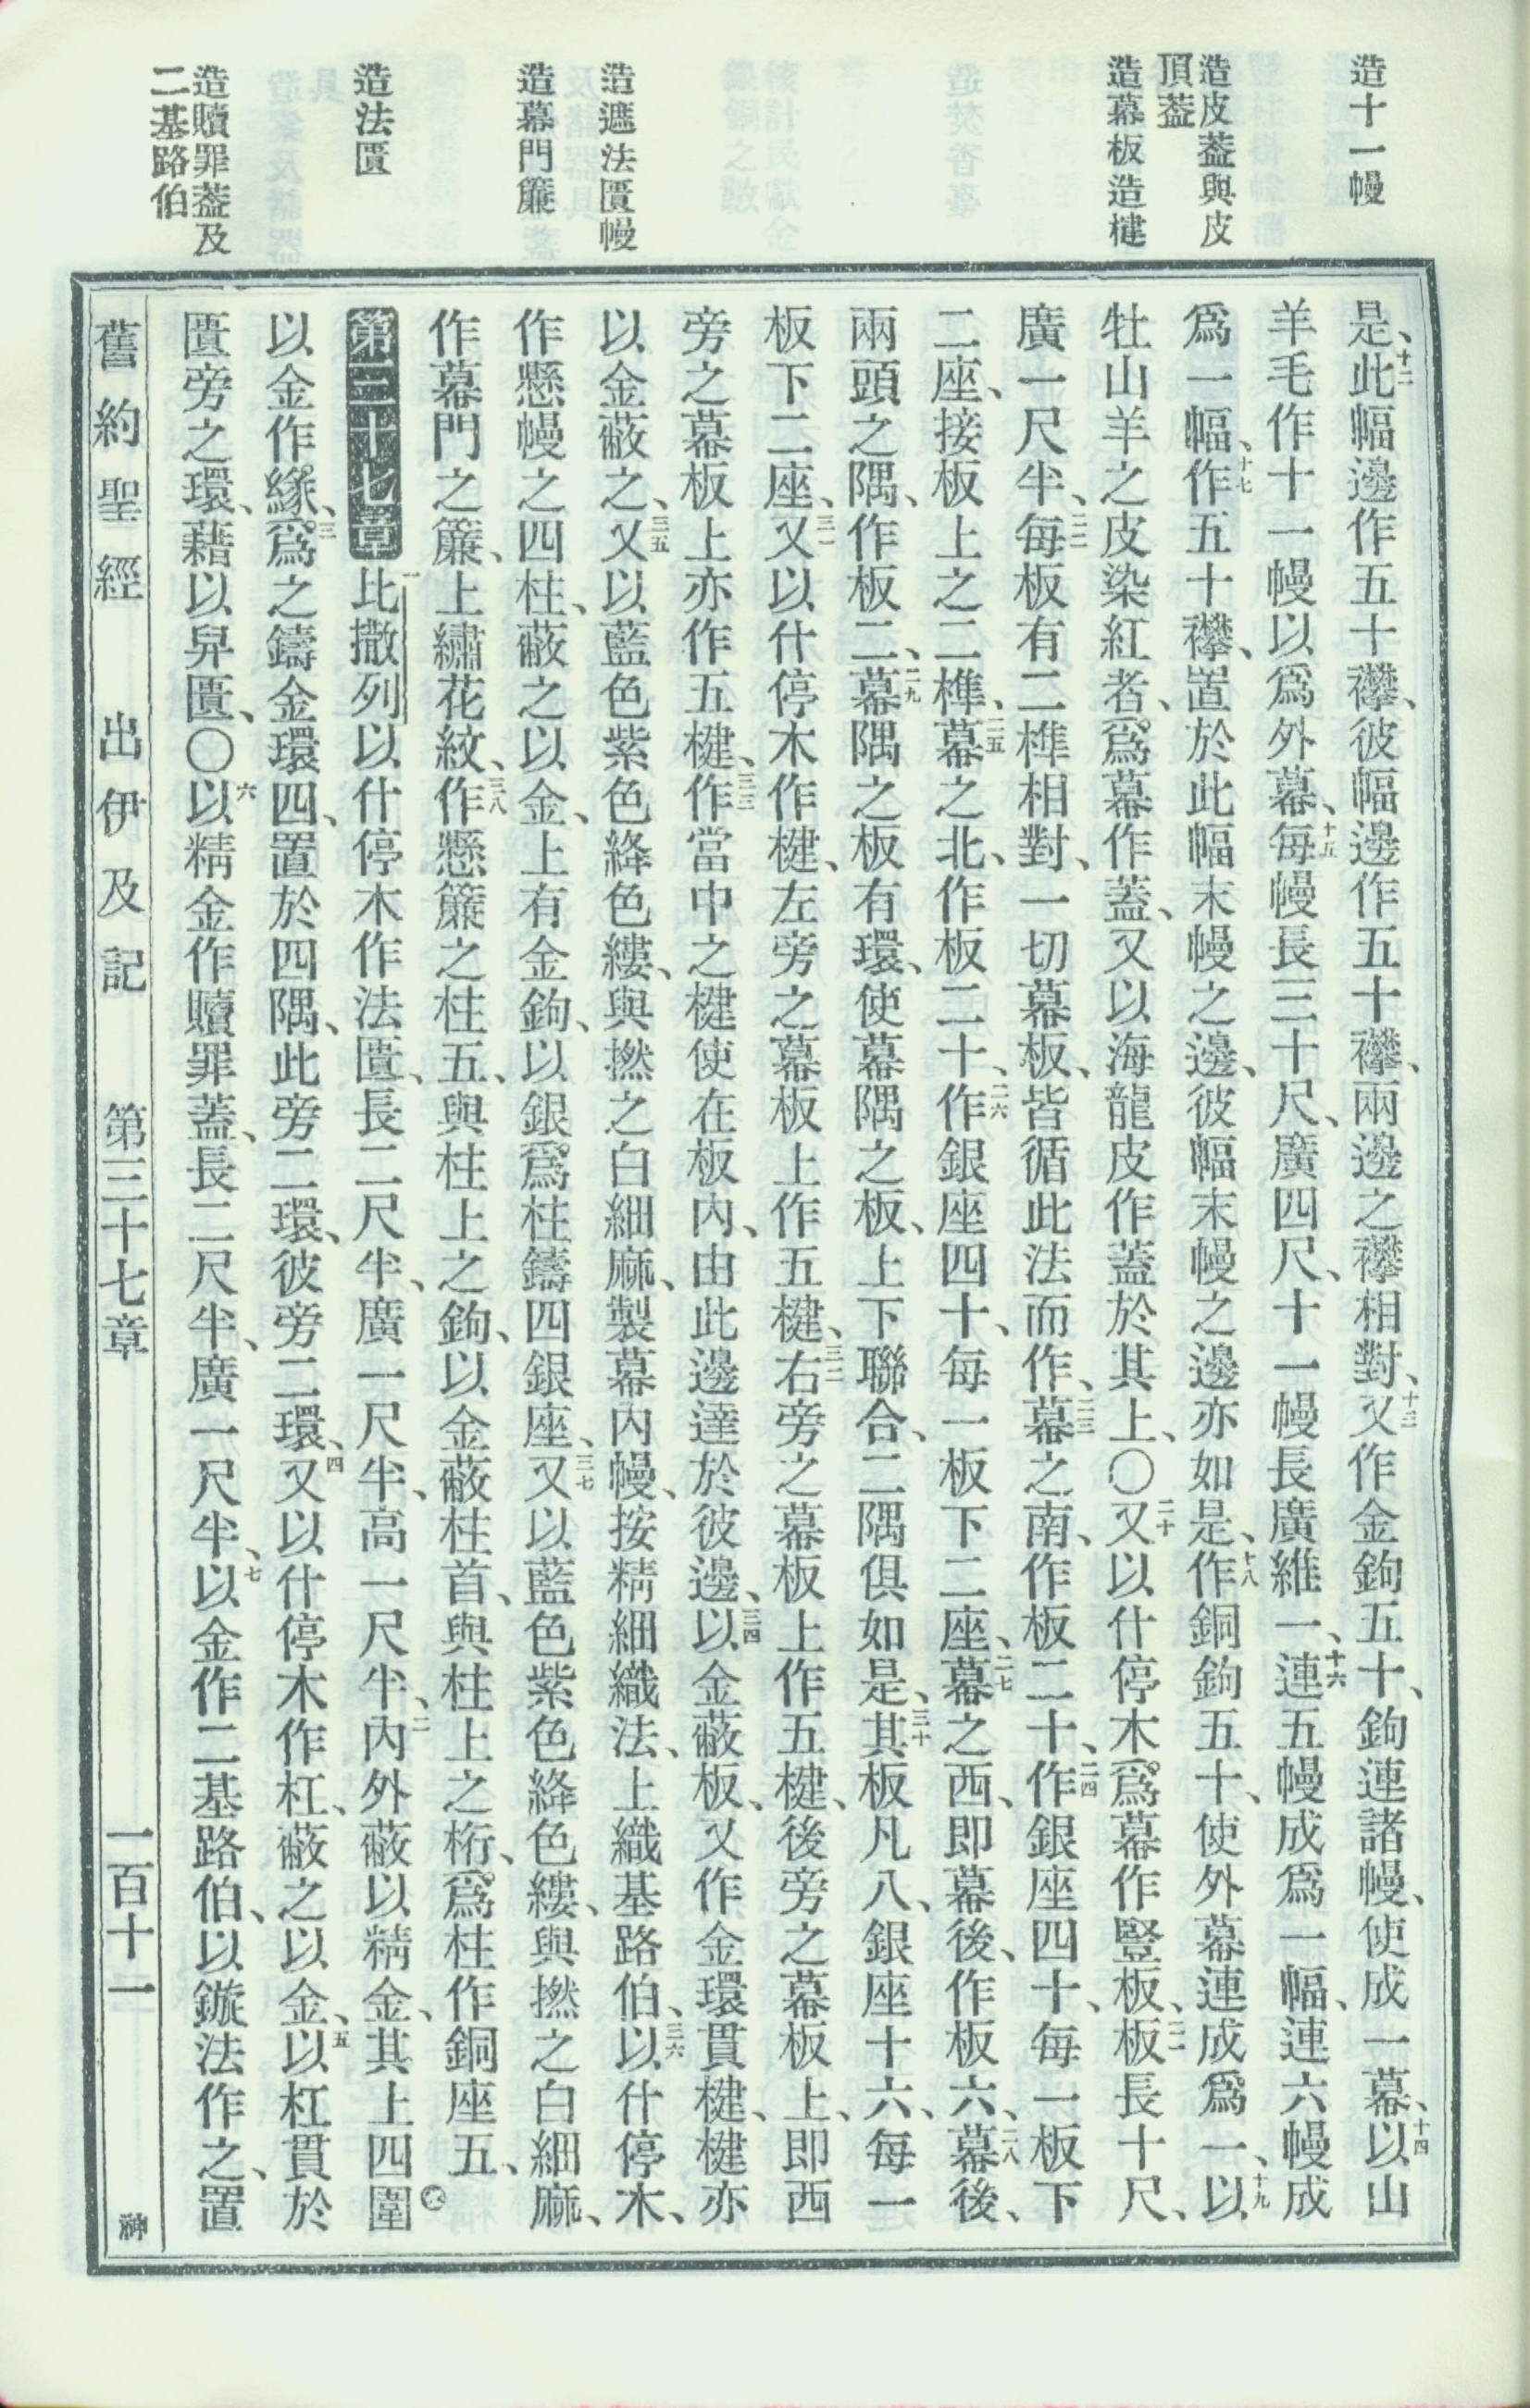 造十一幔
造皮葢與皮
頂葢
造幕板造楗
造遮法匱幔
造幕門簾
造法匱
造贖罪葢及
二基路伯
是、十二此幅邊作五十襻、彼幅邊作五十襻、兩邊之襻相對、十三又作金鉤五十、鉤連諸幔、使成一幕、十四以山
羊毛作十一幔以爲外幕、十五每幔長三十尺、廣四尺、十一幔長廣維一、十六連五幔成爲一幅、連六幔成
爲一幅、十七作五十襻、置於此幅末幔之邊、彼幅末幔之邊亦如是、十八作銅鉤五十、使外幕連成爲一、十九以
牡山羊之皮染紅者、爲幕作蓋、又以海龍皮作蓋於其上、〇二十又以什停木爲幕作豎板、二一板長十尺、
廣一尺半、二二每板有二榫相對、一切幕板、皆循此法而作、二三幕之南、作板二十、二四作銀座四十、每一板下
二座、接板上之二榫、二五幕之北、作板二十、二六作銀座四十、每一板下二座、二七幕之西、即幕後、作板六、二八幕後、
兩頭之隅、作板二、二九幕隅之板有環、使幕隅之板、上下聯合、二隅俱如是、三十其板凡八、銀座十六、每一
板下二座、三一又以什停木作楗、左旁之幕板上作五楗、三二右旁之幕板上作五楗、後旁之幕板上、即西
旁之幕板上亦作五楗、三三作當中之楗使在板內、由此邊達於彼邊、三四以金蔽板、又作金環貫楗、楗亦
以金蔽之、三五又以藍色紫色絳色縷、與撚之白細麻、製幕內幔、按精細織法、上織基路伯、三六以什停木、
作懸幔之四柱、蔽之以金、上有金鉤、以銀爲柱鑄四銀座、三七又以藍色紫色絳色縷、與撚之白細麻、
作幕門之簾、上繡花紋、三八作懸簾之柱五、與柱上之鉤、以金蔽柱首、與柱上之桁、爲柱作銅座五、
第三十七章一比撒列以什停木作法匱、長二尺半、廣一尺半、高一尺半、二內外蔽以精金、其上四圍
以金作緣、三爲之鑄金環四、置於四隅、此旁二環、彼旁二環、四又以什停木作杠、蔽之以金、五以杠貫於
匱旁之環、藉以舁匱、〇六以精金作贖罪蓋、長二尺半、廣一尺半、七以金作二基路伯、以鏇法作之、置
舊約聖經 出伊及記 第三十七章 一百十一 神